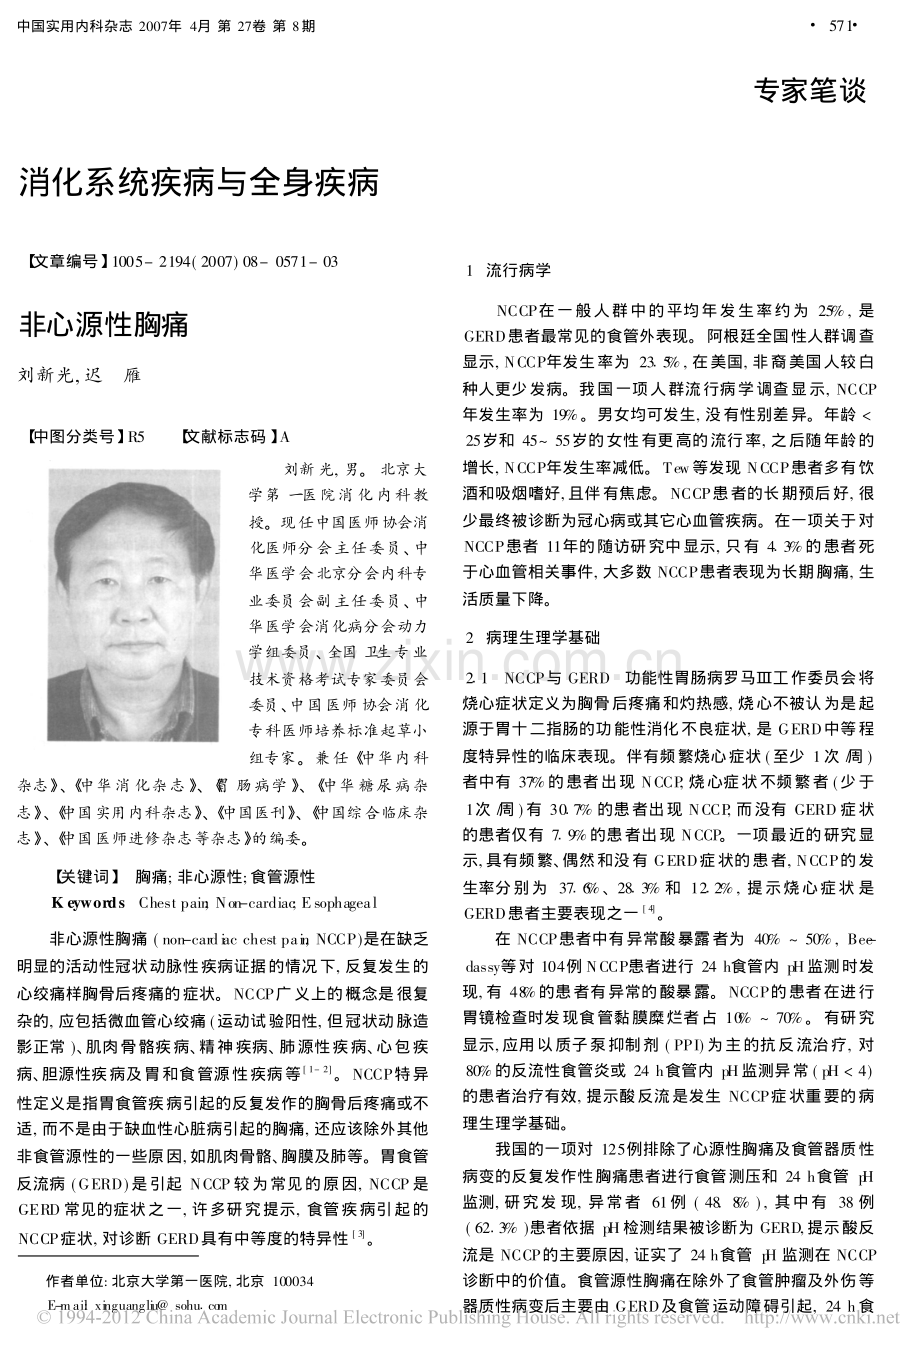 中国实用内科杂志 2007年 4月 第 27卷 第 8期
• 571•
专家笔谈
消化系统疾病与全身疾病
【文章编号】1005- 2194( 2007) 08- 0571- 03
非心源性胸痛
刘新光, 迟 雁
【中图分类号】R5 【文献标志码】A
刘新光, 男。 北京大
学第一医院消化内科教
授。现任中国医师协会消
化医师分会主任委员、中
华医学会北京分会内科专
业委员会副主任委员、中
华医学会消化病分会动力
学组委员、全国卫生专业
技术资格考试专家委员会
委员、中国医师协会消化
专科医师培养标准起草小
组专家。兼任《中华内科
杂志》、《中华消化杂志》、《胃肠病学》、《中华糖尿病杂
志》、《中国实用内科杂志》、《中国医刊》、《中国综合临床杂
志》、《中国医师进修杂志等杂志》的编委。
【关键词】 胸痛; 非心源性; 食管源性
Keywords Chest pain; Non-cardiac; Esophageal
非心源性胸痛 ( non-cardiac chest pain, NCCP)是在缺乏
明显的活动性冠状动脉性疾病证据的情况下, 反复发生的
心绞痛样胸骨后疼痛的症状。NCCP广义上的概念是很复
杂的, 应包括微血管心绞痛 (运动试验阳性, 但冠状动脉造
影正常 )、肌肉骨骼疾病、精神疾病、肺源性疾病、心包疾
病、胆源性疾病及胃和食管源性疾病等[ 1- 2]。 NCCP特异
性定义是指胃食管疾病引起的反复发作的胸骨后疼痛或不
适, 而不是由于缺血性心脏病引起的胸痛, 还应该除外其他
非食管源性的一些原因, 如肌肉骨骼、胸膜及肺等。胃食管
反流病 (GERD)是引起 NCCP较为常见的原因, NCCP是
GERD常见的症状之一, 许多研究提示, 食管疾病引起的
NCCP症状, 对诊断 GERD具有中等度的特异性 [ 3]。
作者单位: 北京大学第一医院, 北京 100034
E-mail xinguangliu@ sohu. com
1 流行病学
NCCP在一般人群中的平均年发生率约为 25% , 是
GERD患者最常见的食管外表现。阿根廷全国性人群调查
显示, NCCP年发生率为 23. 5% , 在美国, 非裔美国人较白
种人更少发病。我国一项人群流行病学调查显示, NCCP
年发生率为 19%。男女均可发生, 没有性别差异。年龄 <
25岁和 45~ 55岁的女性有更高的流行率, 之后随年龄的
增长, NCCP年发生率减低。Tew等发现 NCCP患者多有饮
酒和吸烟嗜好, 且伴有焦虑。 NCCP患者的长期预后好, 很
少最终被诊断为冠心病或其它心血管疾病。在一项关于对
NCCP患者 11年的随访研究中显示, 只有 4. 3%的患者死
于心血管相关事件, 大多数 NCCP患者表现为长期胸痛, 生
活质量下降。
2 病理生理学基础
2.1 NCCP与 GERD 功能性胃肠病罗马Ⅲ工作委员会将
烧心症状定义为胸骨后疼痛和灼热感, 烧心不被认为是起
源于胃十二指肠的功能性消化不良症状, 是 GERD中等程
度特异性的临床表现。伴有频繁烧心症状 (至少 1次 /周 )
者中有 37%的患者出现 NCCP, 烧心症状不频繁者 (少于
1次 /周 )有 30. 7%的患者出现 NCCP, 而没有 GERD症状
的患者仅有 7. 9%的患者出现 NCCP。一项最近的研究显
示, 具有频繁、偶然和没有 GERD症状的患者, NCCP的发
生率分别为 37. 6%、28. 3%和 12. 2% , 提示烧心症状是
GERD患者主要表现之一 [ 4]。
在 NCCP患者中有异常酸暴露者为 40% ~ 50% , Bee-
dassy等对 104例 NCCP患者进行 24 h食管内 pH监测时发
现, 有 48%的患者有异常的酸暴露。 NCCP的患者在进行
胃镜检查时发现食管黏膜糜烂者占 10% ~ 70%。有研究
显示, 应用以质子泵抑制剂 ( PPI)为主的抗反流治疗, 对
80%的反流性食管炎或 24 h食管内 pH监测异常 ( pH < 4)
的患者治疗有效, 提示酸反流是发生 NCCP症状重要的病
理生理学基础。
我国的一项对 125例排除了心源性胸痛及食管器质性
病变的反复发作性胸痛患者进行食管测压和 24 h食管 pH
监测, 研究发现, 异常者 61例 ( 48. 8% ) , 其中有 38例
( 62. 3% )患者依据 pH检测结果被诊断为 GERD, 提示酸反
流是 NCCP的主要原因, 证实了 24 h食管 pH监测在 NCCP
诊断中的价值。食管源性胸痛在除外了食管肿瘤及外伤等
器质性病变后主要由 GERD及食管运动障碍引起, 24 h食
www.zixin.com.cn
© 1994-2012 China Academic Journal Electronic Publishing House. All rights reserved. http://www.cnki.net